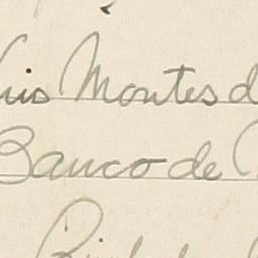 Luis Montes d
Banco de